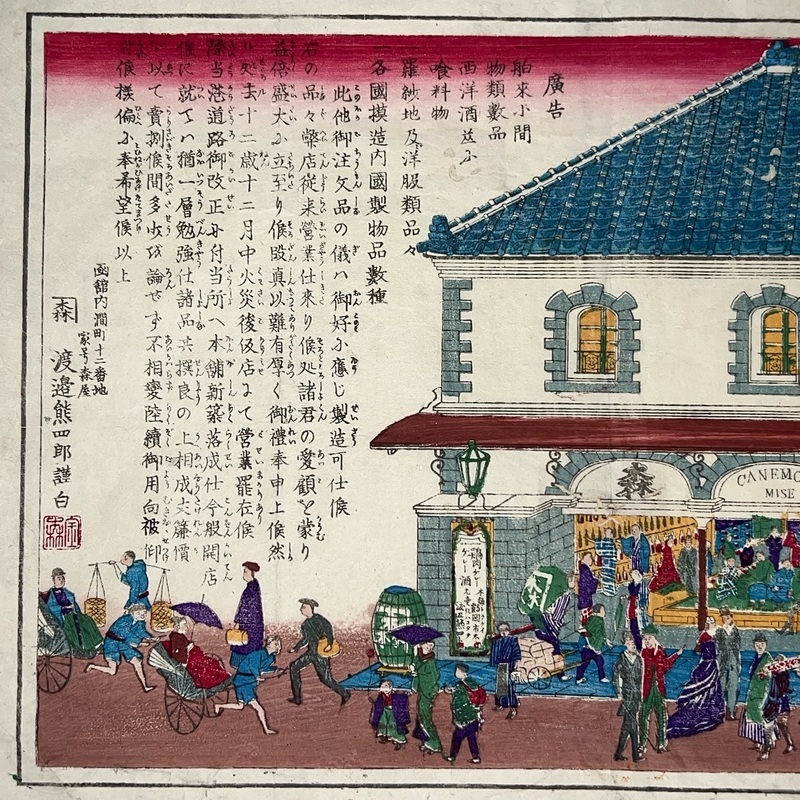 廣告
舶來小間
物類數品
西洋酒并ニ
喰料物
羅紗地及洋服類品々
各國摸造内國製物品數種
此他御注文品の儀ハ御好ニ應じ製造可仕候
右の品々弊店従来營業仕來り候処諸君の愛顧を蒙り
益倍盛大ニ立至り候段真以難有厚く御禮奉申上候然
り処去十二歳十二月中火災後仮店にて營業罷在候
際当港道路御改正ニ付当所へ本舗新築落成仕今般開店
候に就てハ猶一層勉強仕諸品共撰良の上相成丈廉價
を以て賣捌候間多少を論せず不相變陸續御用向被仰
付候様偏ニ奉希望候以上
函館内澗町十二番地
家号森屋
森 渡邉熊四郎謹白
森
CANEMO
MISE
森